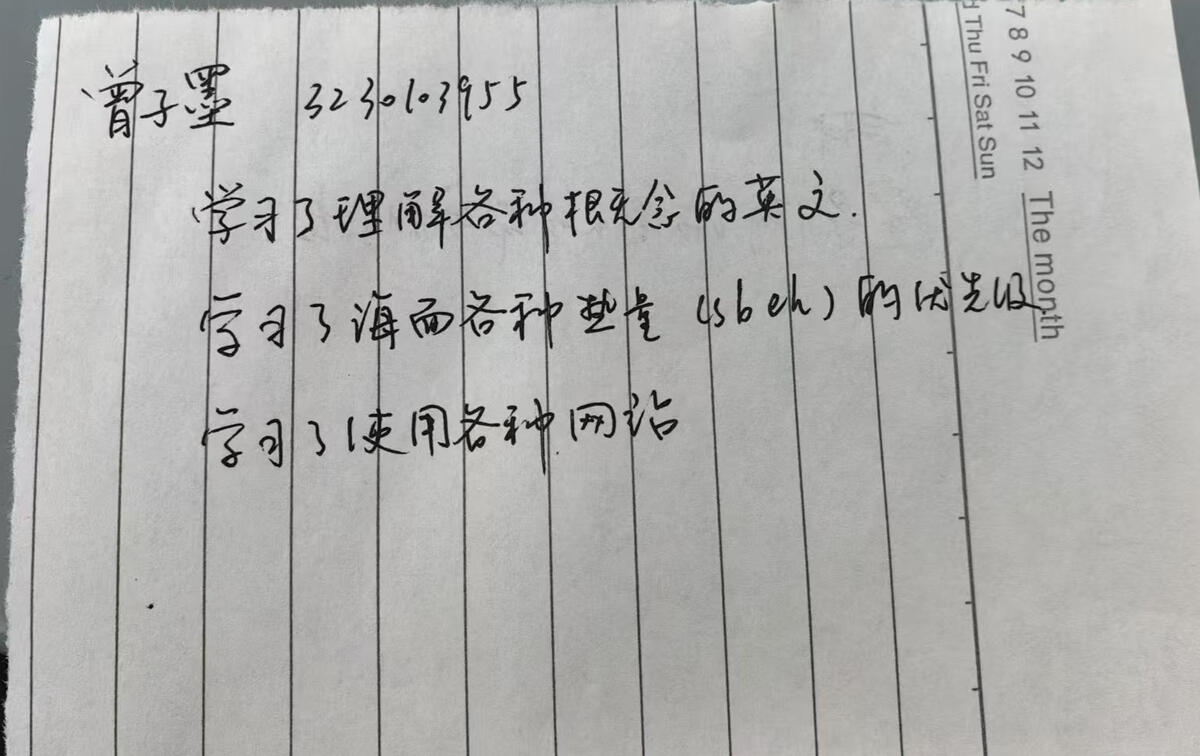 曾子墨 3230103955
学习了理解各种概念的英文.
学习了海面各种垫量(sbeh)的优先级
学习了使用各种网站
7 8 9 10 11 12 The month
Thu Fri Sat Sun